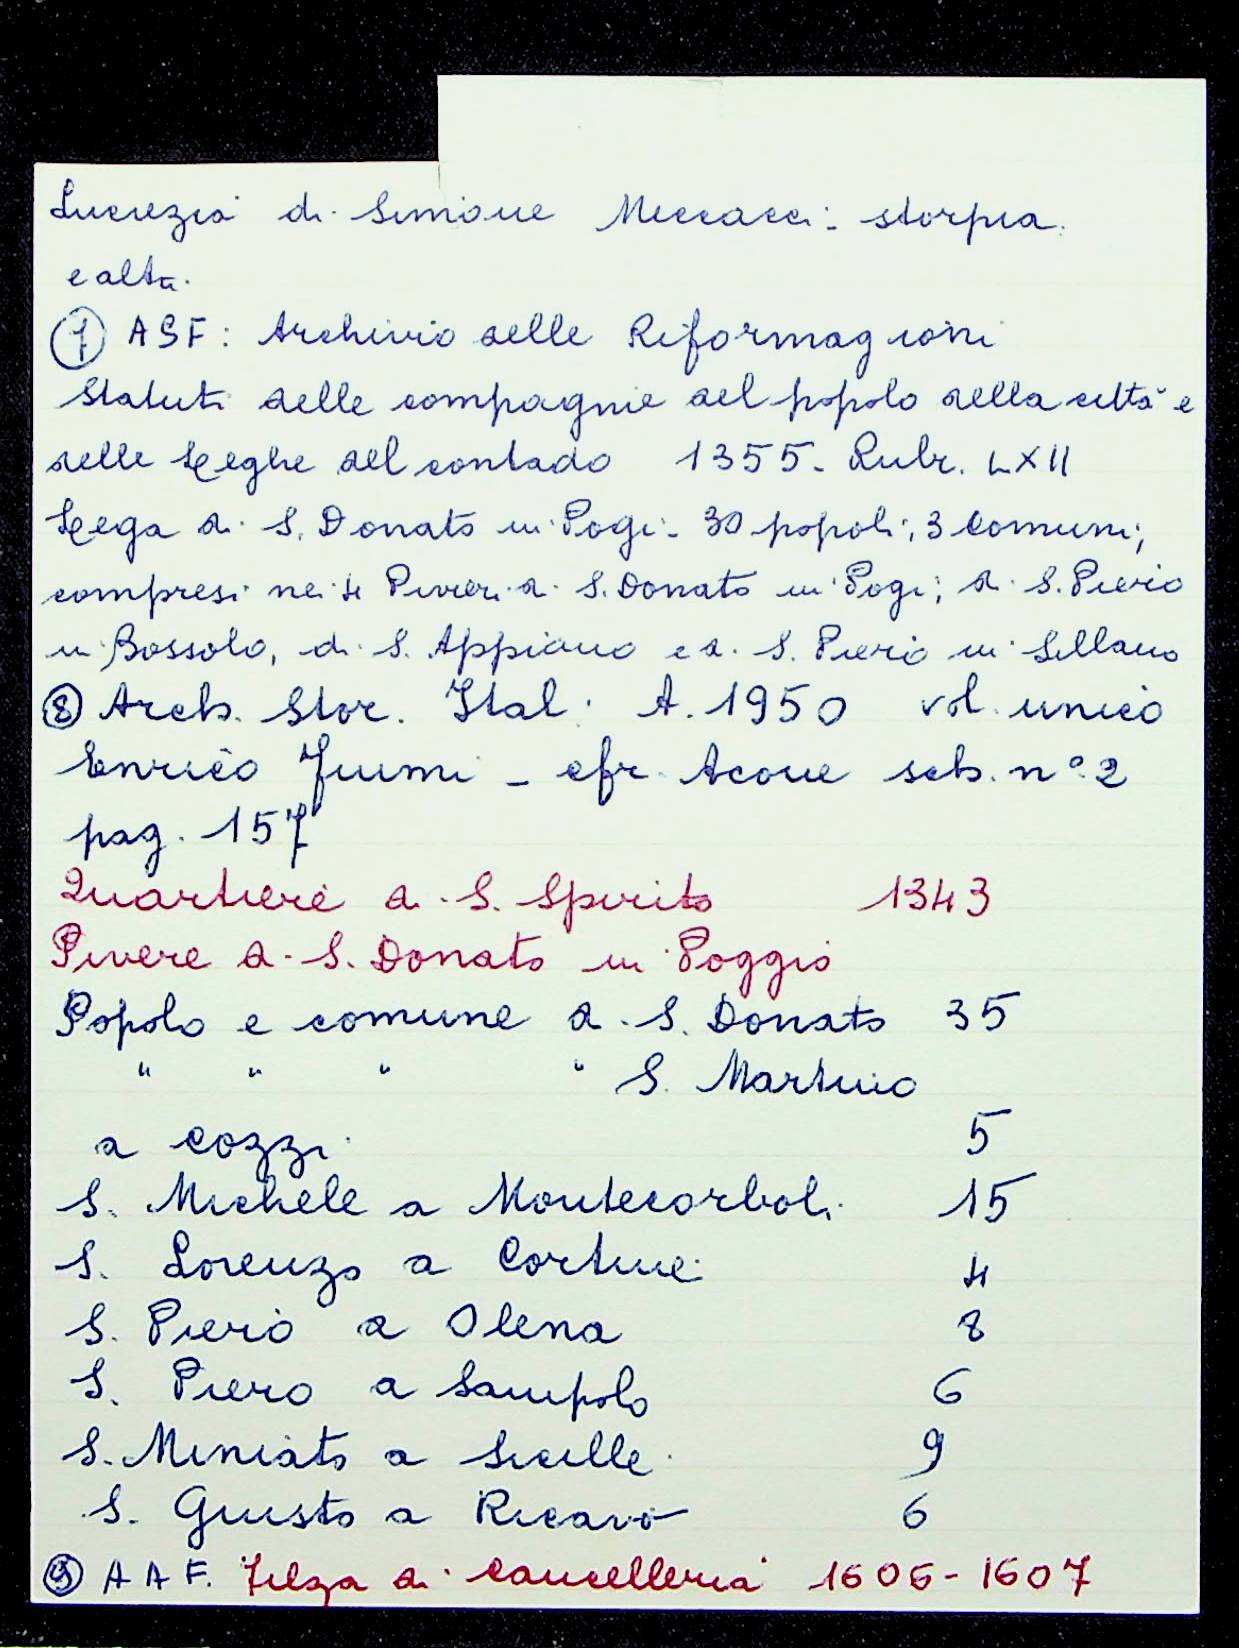 Lucrezia di Simone Meccacci - storpia
e altri.
⑦ ASF: Archivio delle Riformagioni
Statuti delle compagnie del popolo della città e
delle Leghe del contado 1355 - Rubr. LXII
Lega di S. Donato in Pogi - 30 popoli, 3 Comuni,
compresi nei 4 Pivieri di S. Donato in Pogi; di S. Piero
in Bossolo, di S. Appiano e di S. Piero in Sillano
⑧ Arch. Stor. Ital. A. 1950 vol. unico
Enrico Fiumi - cfr. Acone sch. n° 2
pag. 157
Quartiere di S. Spirito 1343
Pivere di S. Donato in Poggio
Popolo e comune di S. Donato 35
" " " " S. Martino
a Cozzi 5
S. Michele a Montecorboli 15
S. Lorenzo a Cortine 4
S. Piero a Olena 8
S. Piero a Sampolo 6
S. Miniato a Sicelle 9
S. Giusto a Ricavo 6
⑨ AAF. Filza di Cancelleria 1606-1607